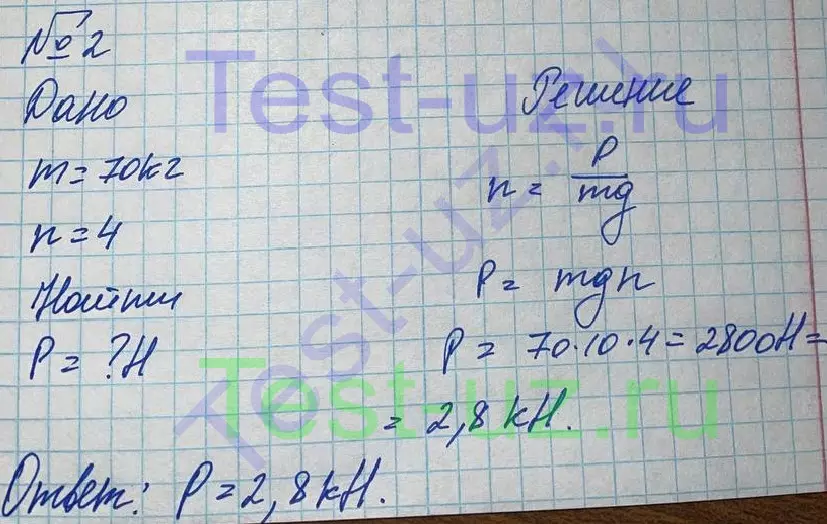 № 2
Дано
Решение
m = 70 кг
n = P/mg
n = 4
P = mgn
Найти
P = ? Н
P = 70·10·4 = 2800Н =
= 2,8 кН.
Ответ: P = 2,8 кН.
Test-uz.ru
Test-uz.ru
Test-uz.ru